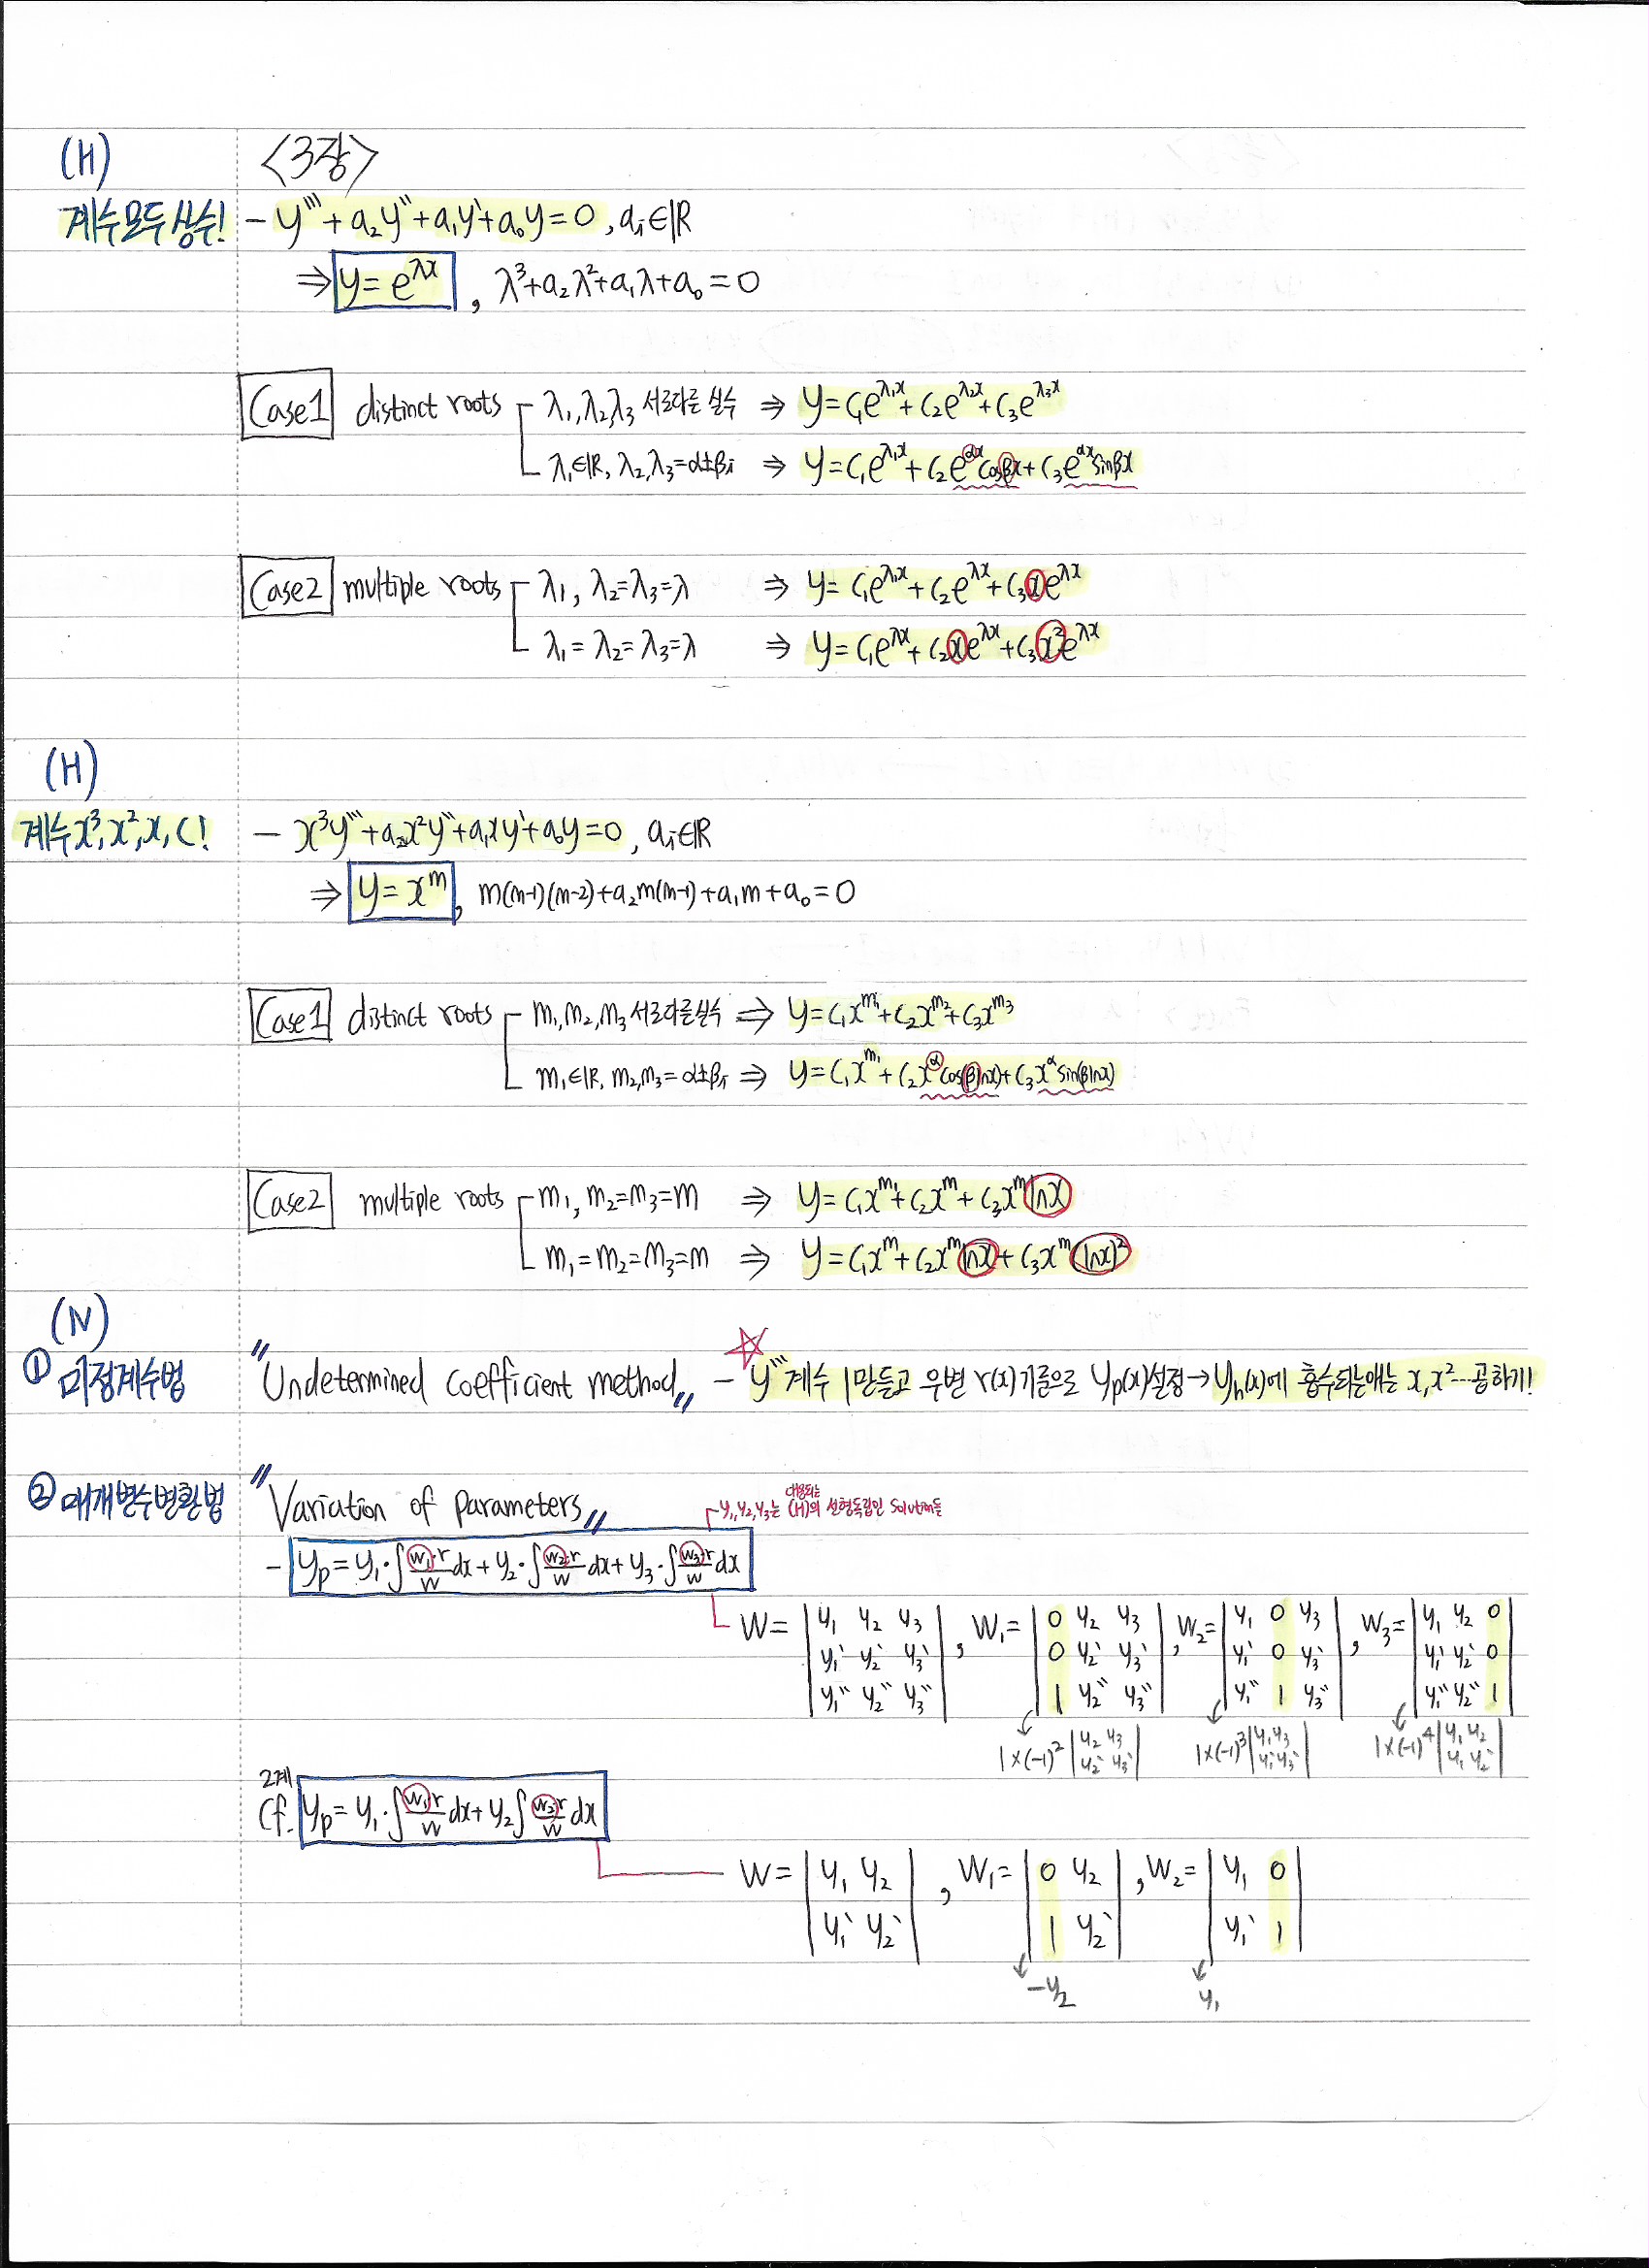 (H) <3장>
계수 모두 상수! - y''' + a₂y'' + a₁y' + a₀y = 0, aᵢ∈ℝ
⇒ y = e^{λx}, λ³+a₂λ²+a₁λ+a₀ = 0
Case1 distinct roots ┌ λ₁, λ₂, λ₃ 서로다른 실수 ⇒ y = c₁e^{λ₁x} + c₂e^{λ₂x} + c₃e^{λ₃x}
└ λ₁∈ℝ, λ₂, λ₃ = α±βi ⇒ y = c₁e^{λ₁x} + c₂e^{αx}cosβx + c₃e^{αx}sinβx
Case2 multiple roots ┌ λ₁, λ₂=λ₃=λ ⇒ y = c₁e^{λ₁x} + c₂e^{λx} + c₃xe^{λx}
└ λ₁ = λ₂ = λ₃ = λ ⇒ y = c₁e^{λx} + c₂xe^{λx} + c₃x²e^{λx}
(H)
계수 x³, x², x, C! - x³y''' + a₂x²y'' + a₁xy' + a₀y = 0, aᵢ∈ℝ
⇒ y = x^m, m(m-1)(m-2)+a₂m(m-1)+a₁m+a₀ = 0
Case1 distinct roots ┌ m₁, m₂, m₃ 서로다른 실수 ⇒ y = c₁x^{m₁} + c₂x^{m₂} + c₃x^{m₃}
└ m₁∈ℝ, m₂, m₃ = α±βi ⇒ y = c₁x^{m₁} + c₂x^α cos(βlnx) + c₃x^α sin(βlnx)
Case2 multiple roots ┌ m₁, m₂=m₃=m ⇒ y = c₁x^{m₁} + c₂x^m + c₃x^m lnx
└ m₁=m₂=m₃=m ⇒ y = c₁x^m + c₂x^m lnx + c₃x^m (lnx)²
(N)
① 미정계수법 "Undetermined coefficient method" - ☆ y''' 계수 1 만들고 우변 r(x) 기준으로 yₚ(x) 설정 → yₕ(x)에 흡수되는애는 x, x² … 곱하기!
② 매개변수변환법 "Variation of parameters"
y₁, y₂, y₃는 대응되는 (H)의 선형독립인 Solution들
- yₚ = y₁·∫(W₁·r/W)dx + y₂·∫(W₂·r/W)dx + y₃·∫(W₃·r/W)dx
W = |y₁ y₂ y₃|, W₁ = |0 y₂ y₃|, W₂ = |y₁ 0 y₃|, W₃ = |y₁ y₂ 0|
|y₁' y₂' y₃'| |0 y₂' y₃'| |y₁' 0 y₃'| |y₁' y₂' 0|
|y₁'' y₂'' y₃''| |1 y₂'' y₃''| |y₁'' 1 y₃''| |y₁'' y₂'' 1|
1×(-1)² |y₂ y₃| 1×(-1)³ |y₁ y₃| 1×(-1)⁴ |y₁ y₂|
|y₂' y₃'| |y₁' y₃'| |y₁' y₂'|
2계
Cf. yₚ = y₁·∫(W₁·r/W)dx + y₂∫(W₂·r/W)dx
W = |y₁ y₂|, W₁ = |0 y₂|, W₂ = |y₁ 0|
|y₁' y₂'| |1 y₂'| |y₁' 1|
-y₂ y₁